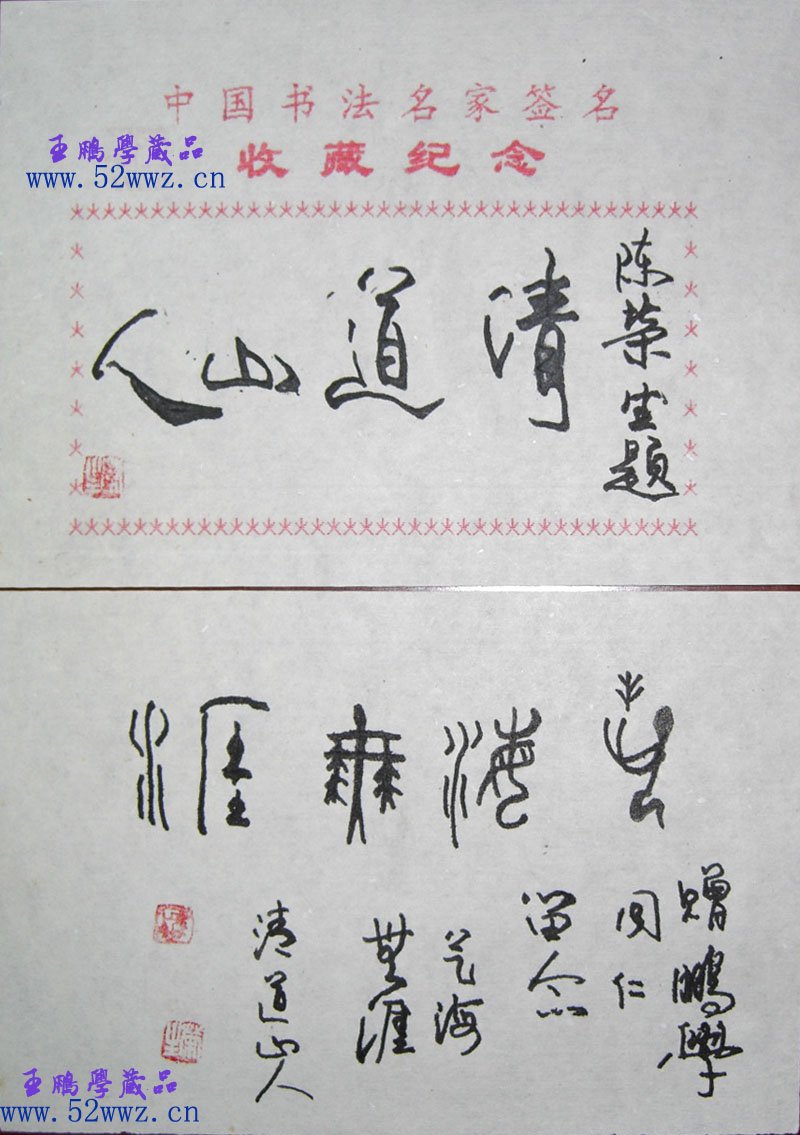 中国书法名家签名
王鵬學藏品
收藏纪念
www.52wwz.cn
陈荣题
清道山人
藝海無涯
赠鵬學
同仁
留念
艺海
無涯
清道山人
王鵬學藏品
www.52wwz.cn